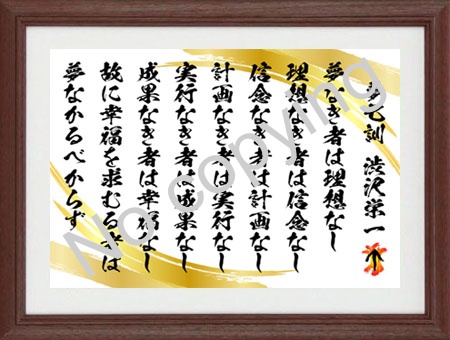 夢七訓 渋沢栄一
夢なき者は理想なし
理想なき者は信念なし
信念なき者は計画なし
計画なき者は実行なし
実行なき者は成果なし
成果なき者は幸福なし
故に幸福を求むる者は
夢なかるべからず
No copying